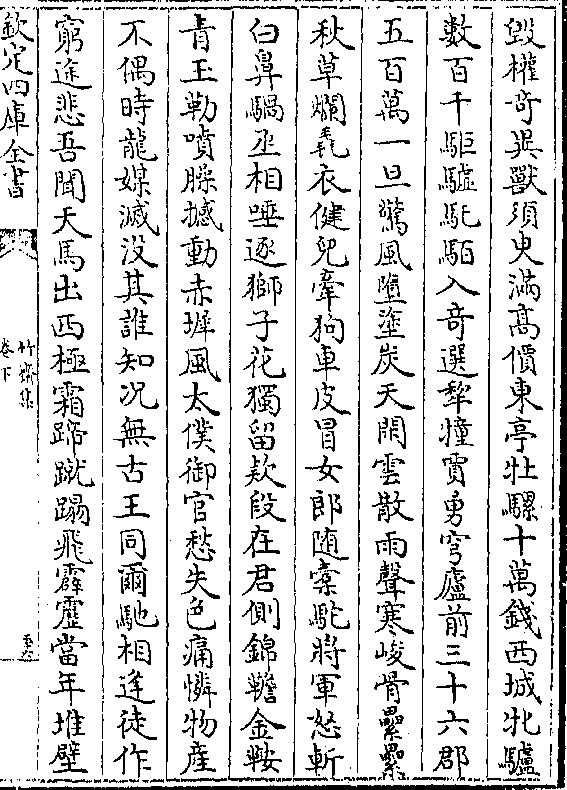 毁權竒異獸須臾滿髙價東亭牡騾十萬錢西城牝驢
數百千駏驉馲駞入竒選犂犝賈勇穹廬前三十六郡
五百萬一旦驚風墮塗炭天閑雲散雨聲寒峻骨纍纍
秋草爛毳衣健兒牽狗車皮冒女郎随橐駝將軍怒斬
白鼻騧丞相唾逐獅子花獨留欵段在君側錦韀金鞍
青玉勒噴臊撼動赤墀風太僕御官愁失色痛憐物産
不偶時龍媒滅没其誰知况無古王同爾馳相逢徒作
窮途悲吾聞天馬出西極霜蹄蹴蹋飛霹靂當年堆壁
欽定四庫全書
竹齋集
卷下